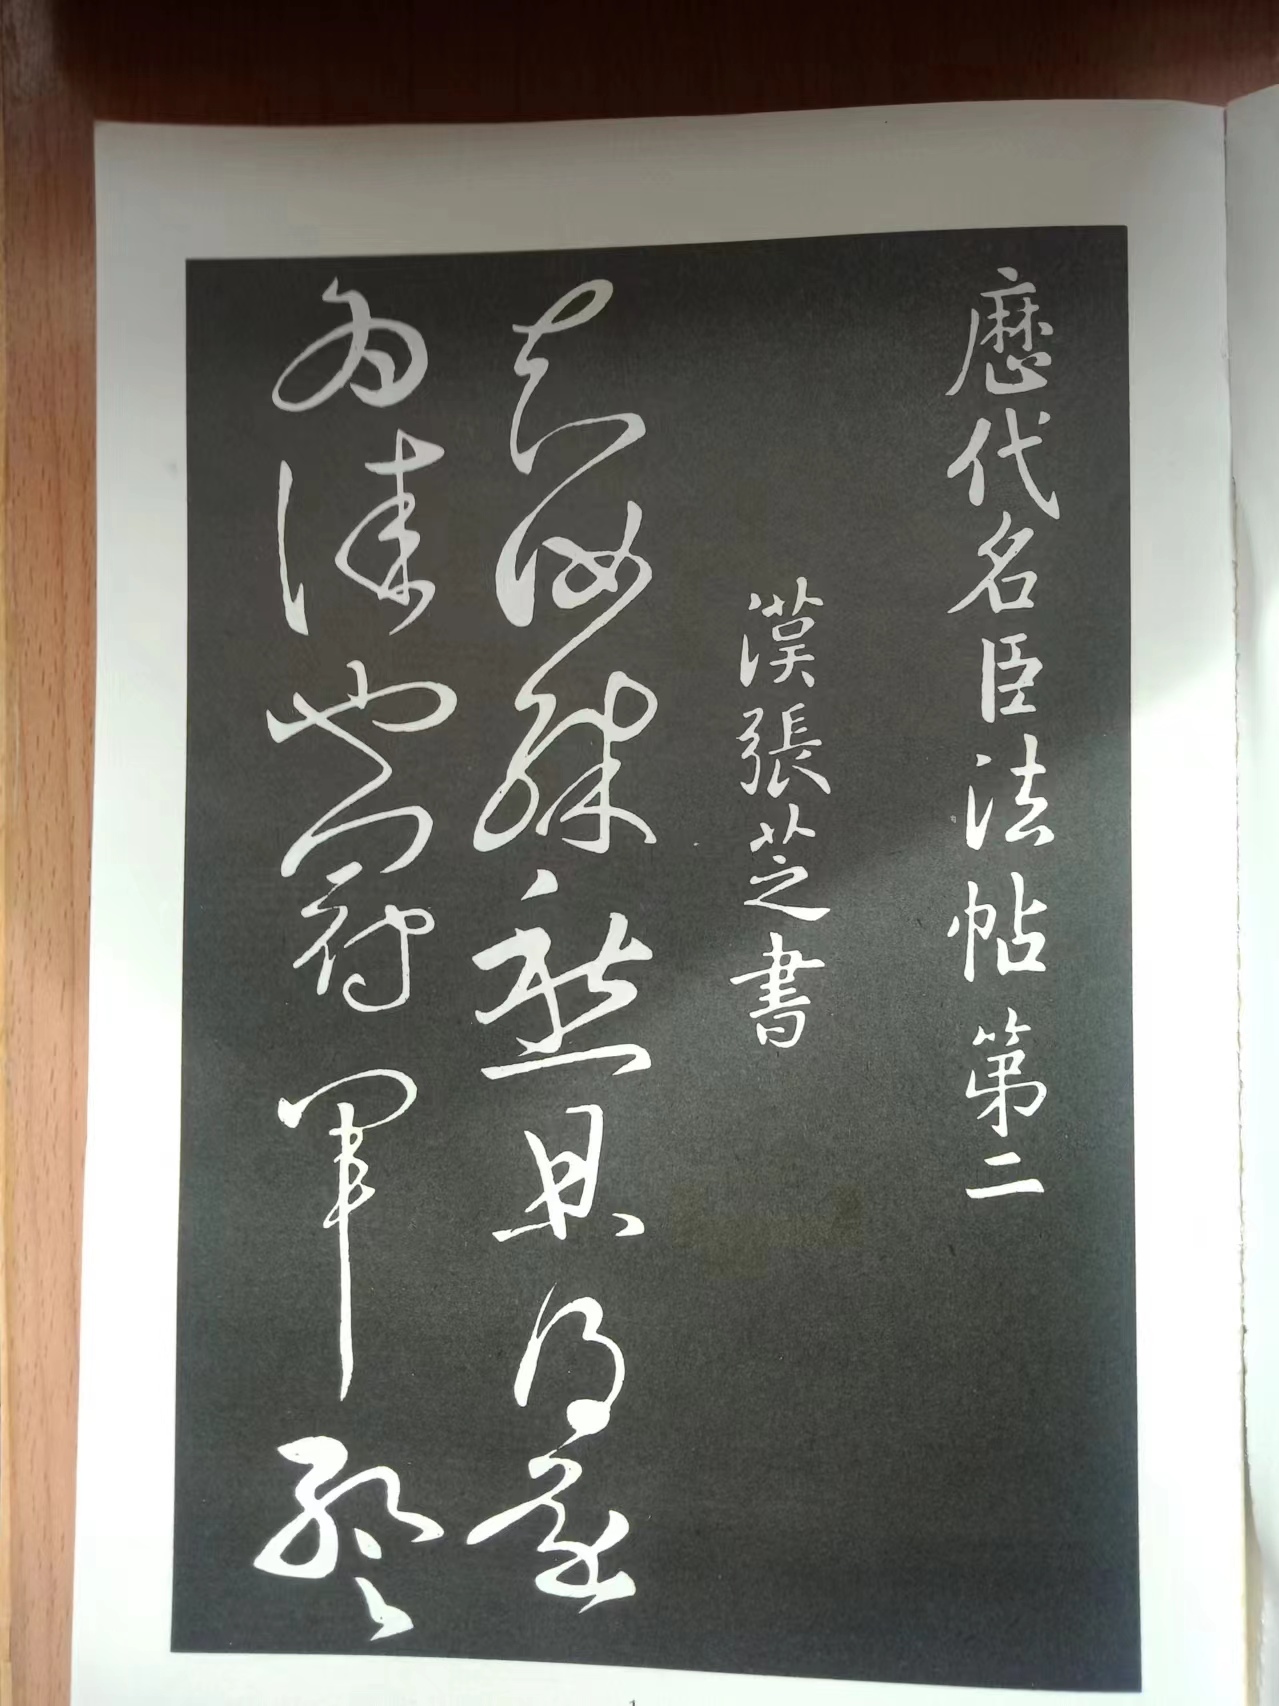 歷代名臣法帖第二
漢張芝書
知汝殊愁且得還
為佳也冠軍暫
1